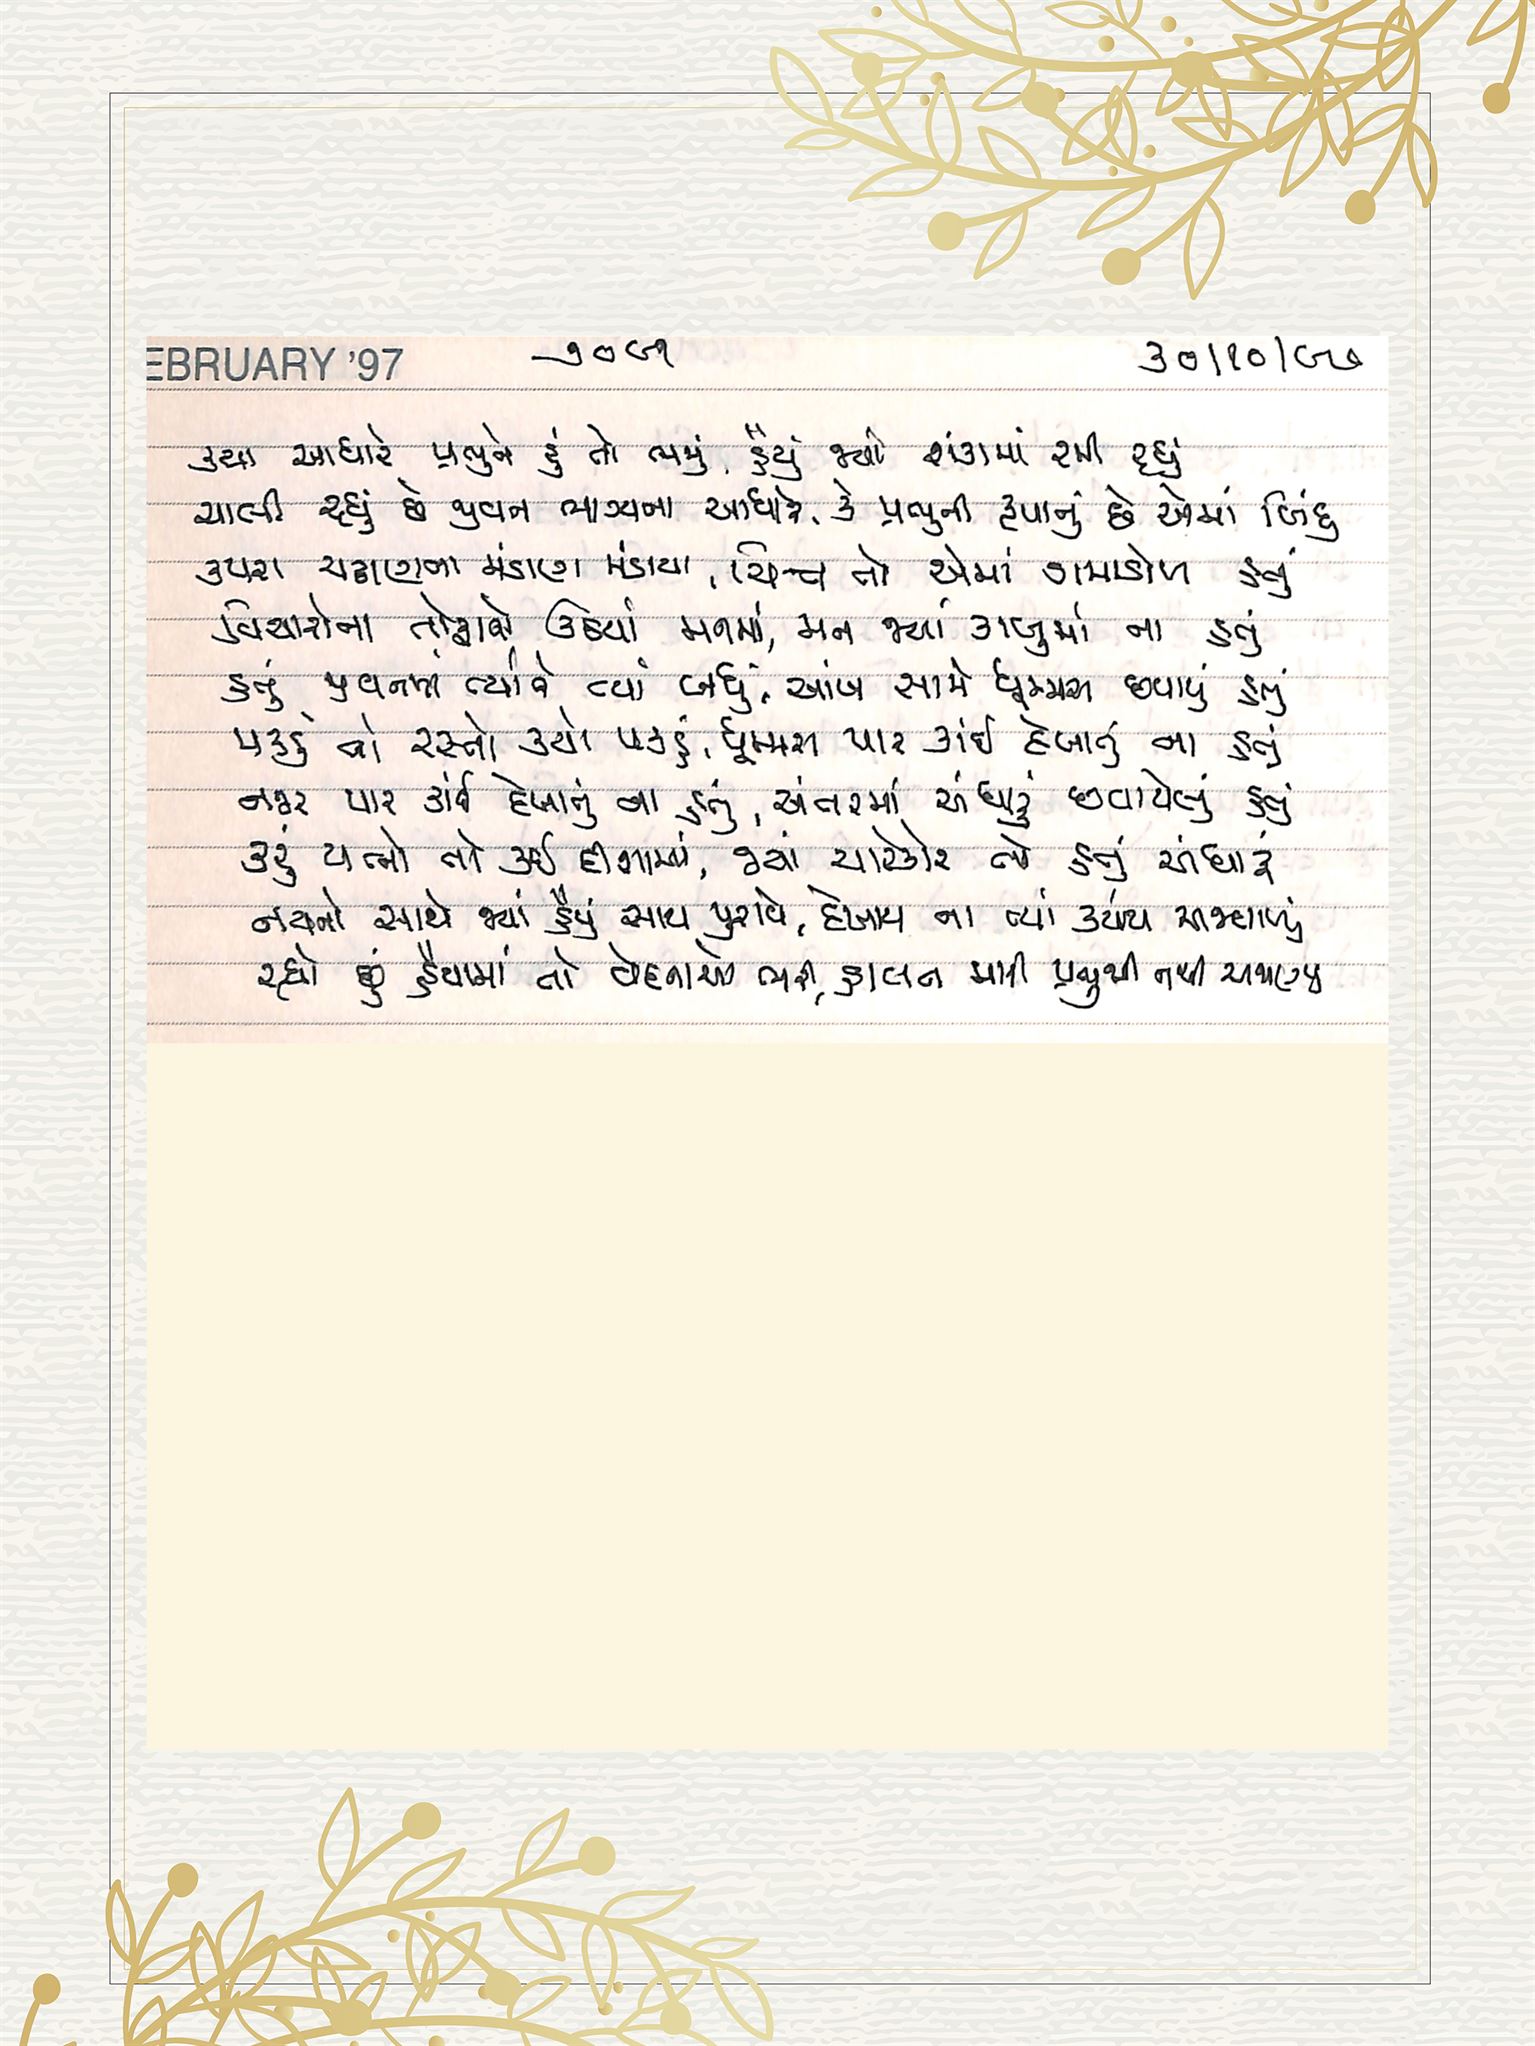 EBRUARY '97 ૭૦૯૧ ૩૦/૧૦/૯૭
કયા આધારે પ્રભુને હું તો ભજું, હૈયું જ્યાં શંકામાં રમી રહ્યું
ચાલી રહ્યું છે જીવન ભાગ્યના આધારે, કે પ્રભુની કૃપાનું છે એમાં બિંદુ
કપરા ચઢાણના મંડાણ મંડાયા, ચિત્ત તો એમાં ડામાડોળ હતું
વિચારોના તોફાનો ઉઠયાં મનમાં, મન જ્યાં કાબુમાં ના હતું
હતું જીવનમાં ત્યારે ત્યાં બધું, આંખ સામે ધૂમ્મસ છવાયું હતું
પકડું તો રસ્તો કયો પકડું, ધૂમ્મસ પાર કાંઈ દેખાતું ના હતું
નજર પાર કાંઈ દેખાતું ના હતું, અંતરમાં અંધારું છવાયેલું હતું
કરું યત્નો તો કઈ દીશામાં, જ્યાં ચારેકોર તો હતું અંધારું
નયનો સાથે જ્યાં હૈયું સાથ પુરાવે, દેખાય ના ત્યાં કયાંય અજવાળું
રહ્યો છું હૈયામાં તો વેદનાઓ ભરી, હાલત મારી પ્રભુથી નથી અજાણ્યું